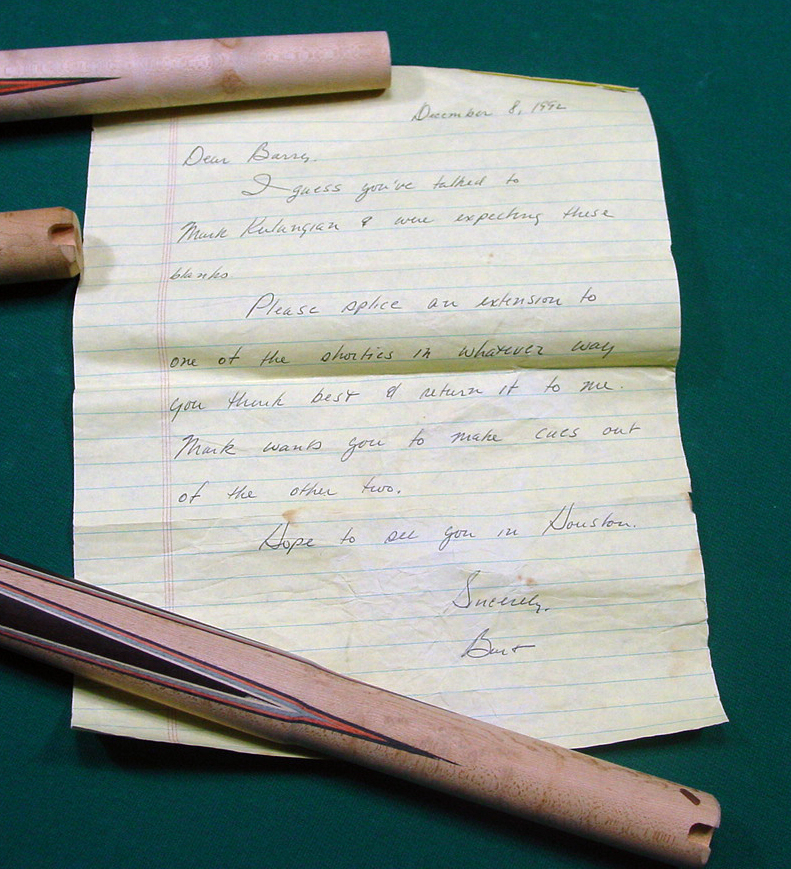 December 8, 1992
Dear Barry.
I guess you've talked to
Mark Kulungian & were expecting these
blanks
Please splice an extension to
one of the shorties in whatever way
you think best & return it to me.
Mark wants you to make cues out
of the other two.
Hope to see you in Houston.
Sincerely,
Burt